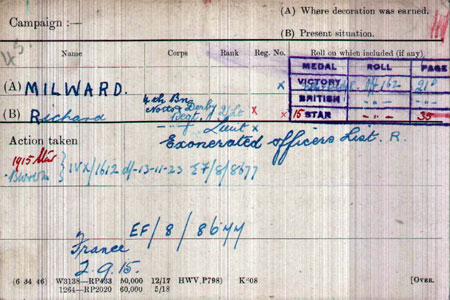 (A) Where decoration was earned.
Campaign :—
(B) Present situation.
Name Corps Rank Reg. No. Roll on which included (if any)
MEDAL ROLL PAGE
(A) MILWARD. x VICTORY 162 21
4th Bn
(B) Richard Notts & Derby 2/Lt x BRITISH -..- -..-
Regt Lieut x 15 STAR -..- 35
Action taken Exonerated officers List. R.
1915 Star IVX/1612 d/-13-11-23 EF/8/8677
EF/8/8677
France
2.9.15.
(6 34 46) W3138—RP433 50,000 12/17 HWV(P798) K608 [OVER.
1264—RP2020 60,000 5/18